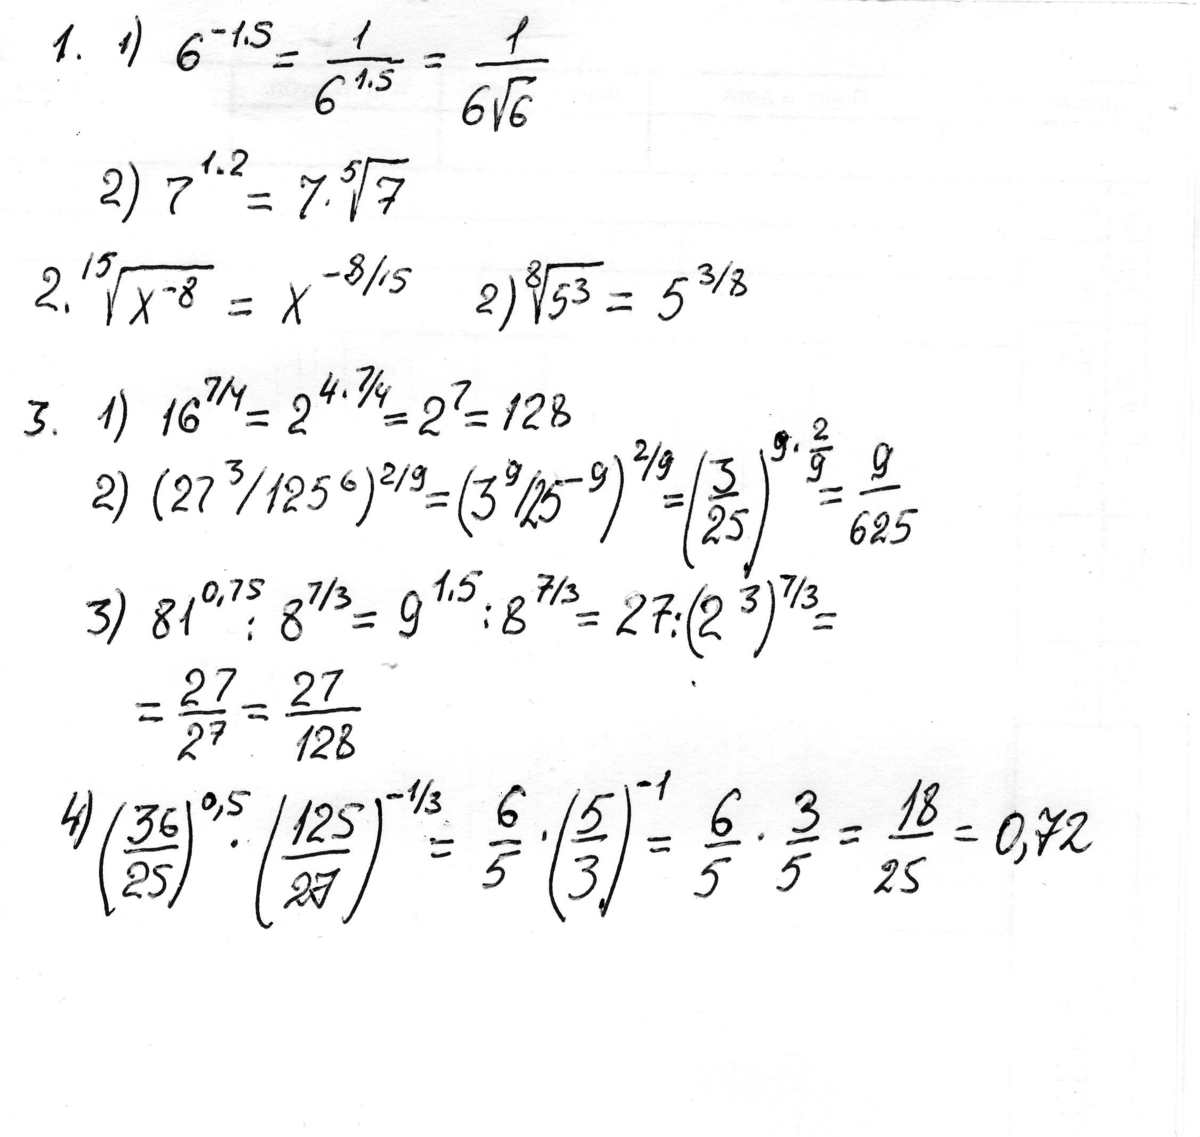 1. 1) 6^-1.5 = 1/6^1.5 = 1/6√6
2) 7^1.2 = 7·⁵√7
2. ¹⁵√x^-8 = x^-8/15 2) ⁸√5³ = 5^3/8
3. 1) 16^7/4 = 2^4·7/4 = 2^7 = 128
2) (27^3/125^6)^2/9 = (3^9/25^-9)^2/9 = (3/25)^9·2/9 = 9/625
3) 81^0,75 : 8^7/3 = 9^1.5 : 8^7/3 = 27:(2^3)^7/3 =
= 27/2^7 = 27/128
4) (36/25)^0,5 · (125/27)^-1/3 = 6/5 · (5/3)^-1 = 6/5 · 3/5 = 18/25 = 0,72